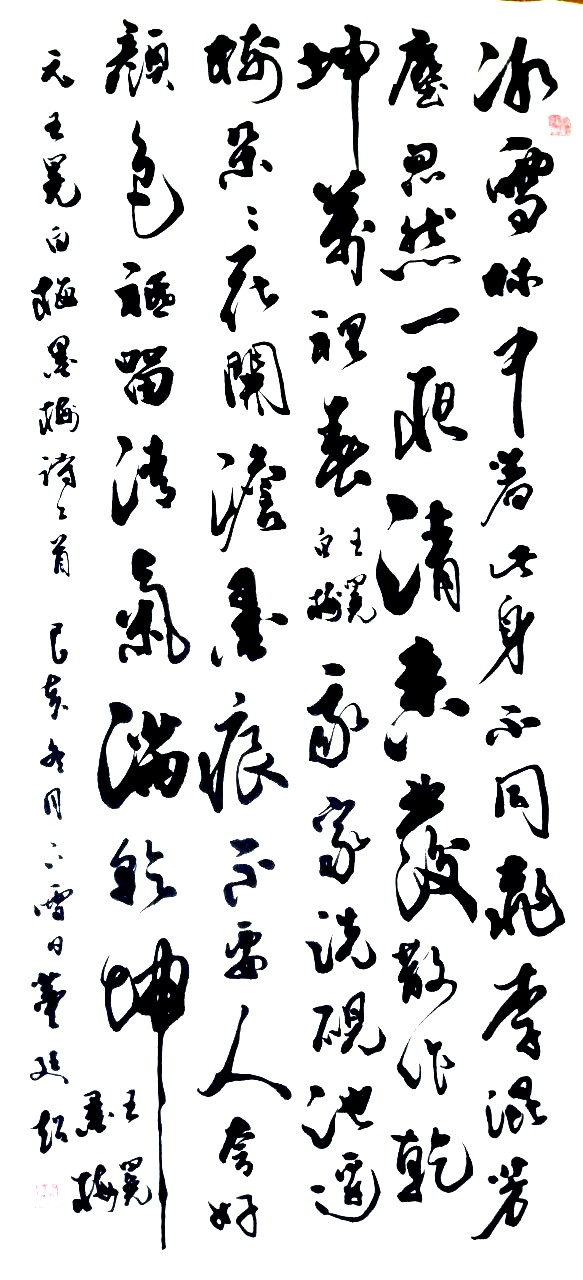 冰雪林中著此身不同桃李混芳
塵忽然一夜清香發散作乾
坤萬里春
王冕
白梅
我家洗硯池邊
樹朵〻花開澹墨痕不要人夸好
顏色祗留清氣滿乾坤
王冕
墨梅
元王冕白梅墨梅詩二首 己亥冬月下雪日